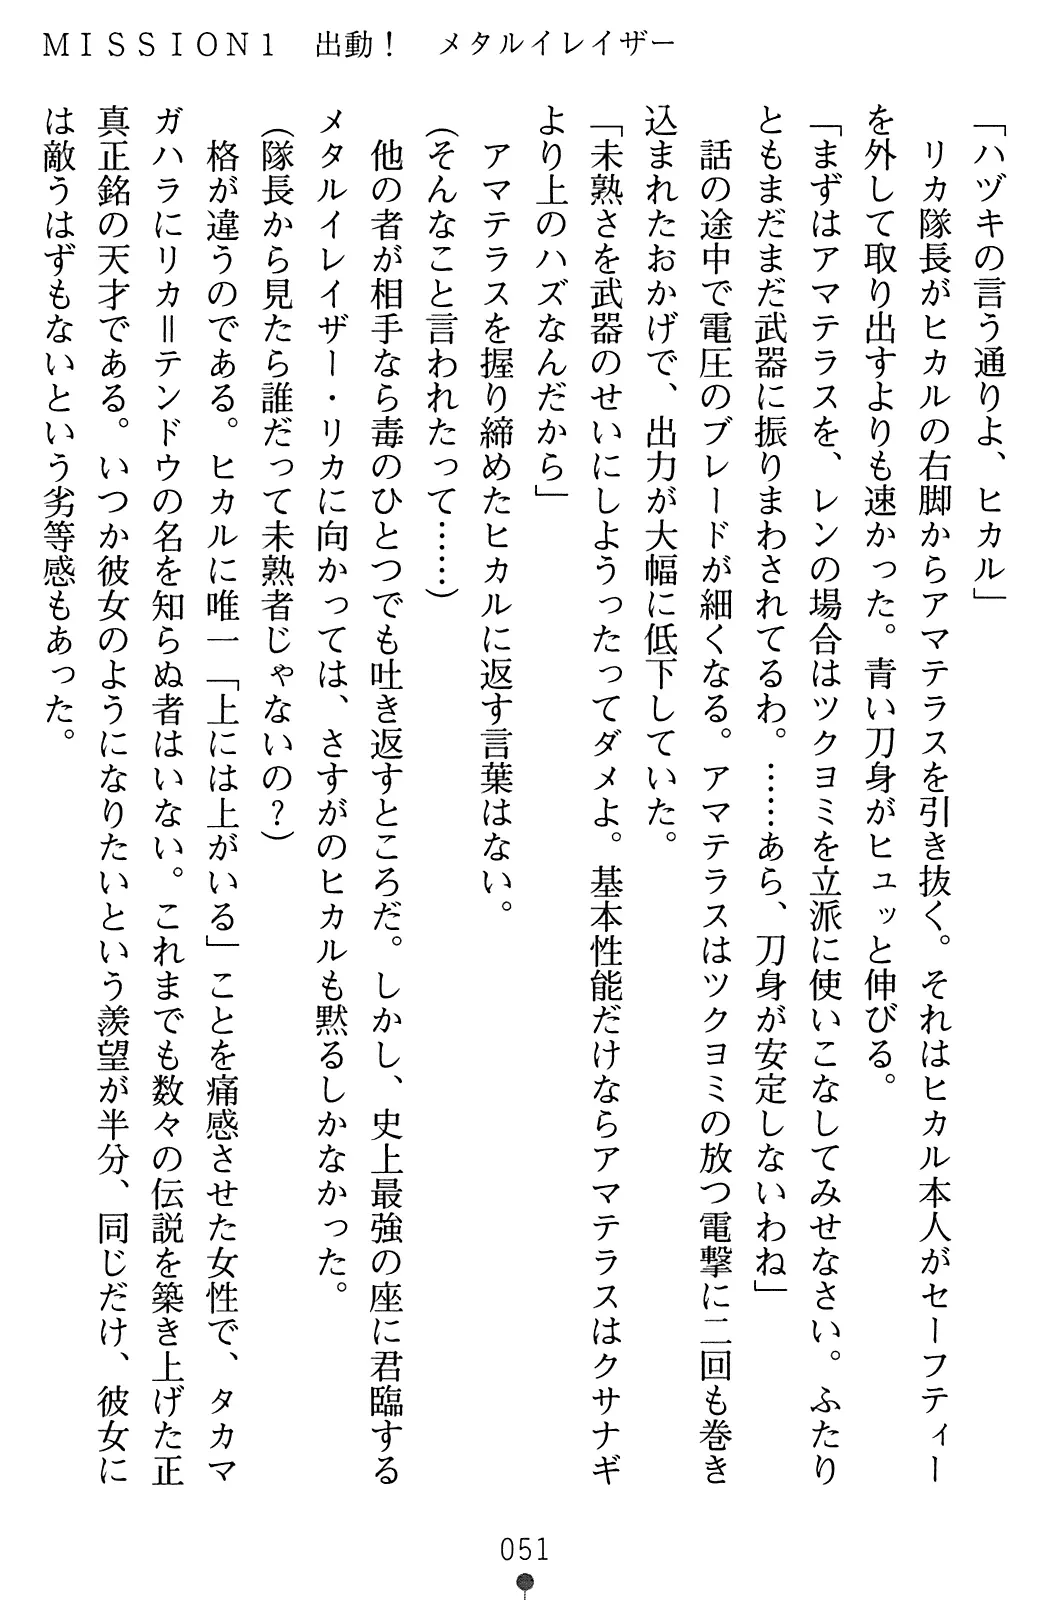 ＭＩＳＳＩＯＮ１　出動！　メタルイレイザー
「ハヅキの言う通りよ、ヒカル」
　リカ隊長がヒカルの右脚からアマテラスを引き抜く。それはヒカル本人がセーフティー
を外して取り出すよりも速かった。青い刀身がヒュッと伸びる。
「まずはアマテラスを、レンの場合はツクヨミを立派に使いこなしてみせなさい。ふたり
ともまだまだ武器に振りまわされてるわ。……あら、刀身が安定しないわね」
　話の途中で電圧のブレードが細くなる。アマテラスはツクヨミの放つ電撃に二回も巻き
込まれたおかげで、出力が大幅に低下していた。
「未熟さを武器のせいにしようったってダメよ。基本性能だけならアマテラスはクサナギ
より上のハズなんだから」
　アマテラスを握り締めたヒカルに返す言葉はない。
（そんなこと言われたって……）
　他の者が相手なら毒のひとつでも吐き返すところだ。しかし、史上最強の座に君臨する
メタルイレイザー・リカに向かっては、さすがのヒカルも黙るしかなかった。
（隊長から見たら誰だって未熟者じゃないの？）
　格が違うのである。ヒカルに唯一「上には上がいる」ことを痛感させた女性で、タカマ
ガハラにリカ＝テンドウの名を知らぬ者はいない。これまでも数々の伝説を築き上げた正
真正銘の天才である。いつか彼女のようになりたいという羨望が半分、同じだけ、彼女に
は敵うはずもないという劣等感もあった。
051